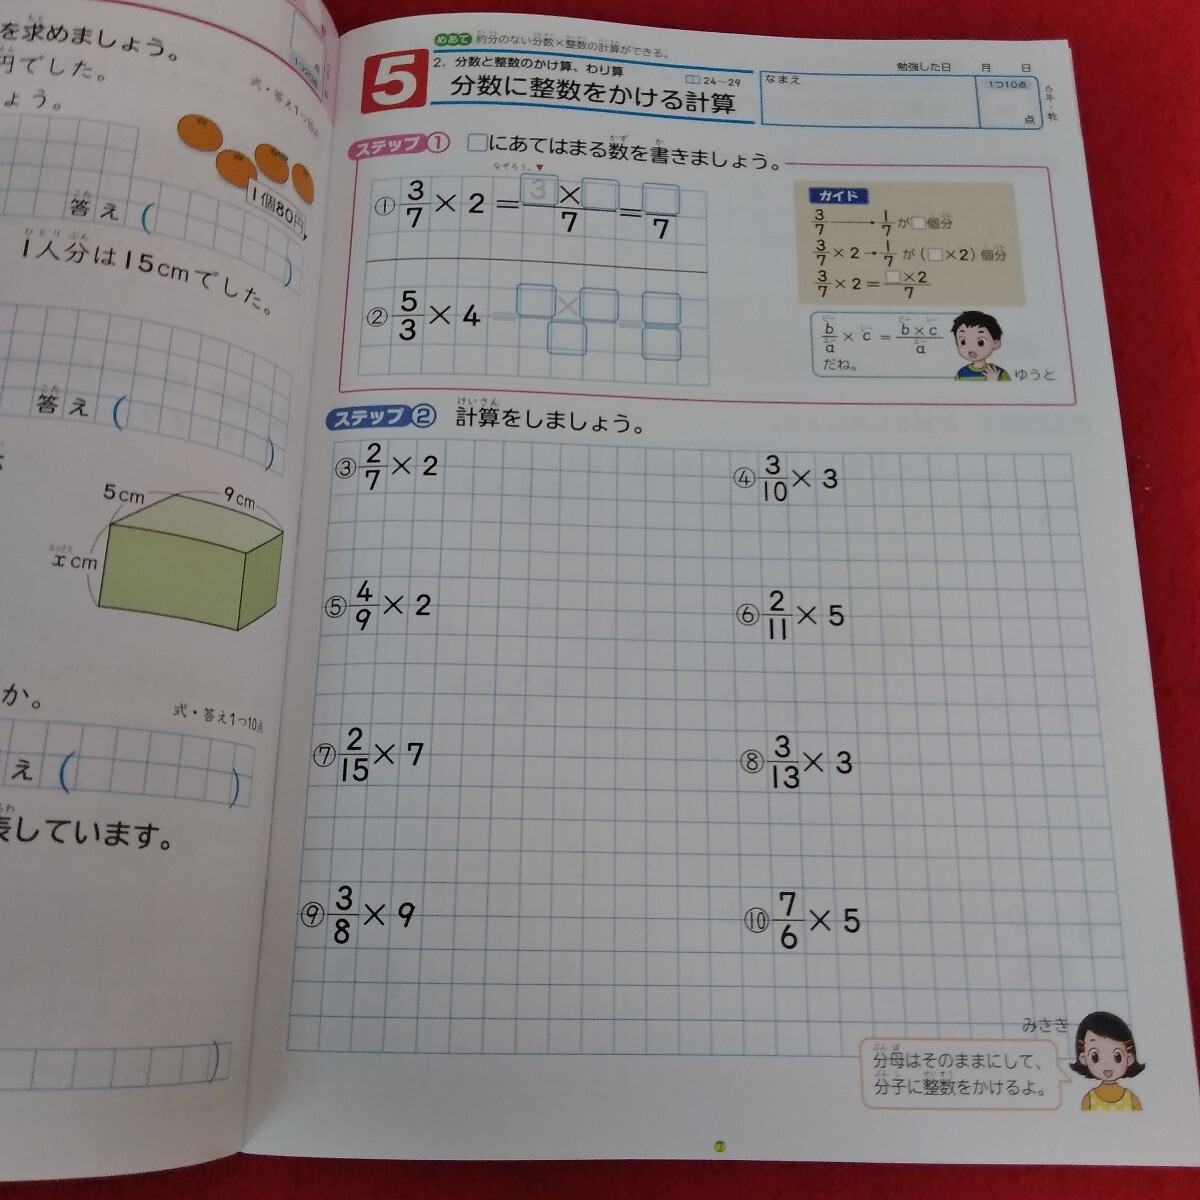 を求めましょう。
円でした。
ょう。
式・答え1つ10点
1個80円
答え ( )
1人分は15cmでした。
答え ( )
5cm
9cm
x cm
か。
式・答え1つ10点
え ( )
表しています。
めあて 約分のない分数×整数の計算ができる。
5
2. 分数と整数のかけ算、わり算
24〜29
分数に整数をかける計算
勉強した日 月 日
なまえ
1つ10点
点
6年・教
ステップ① □にあてはまる数を書きましょう。
なぞろう。▼
① 3/7 × 2 = 3×□/7 = □/7
② 5/3 × 4 = □×□/□ = □/□
ガイド
3/7 → 1/7 が□個分
3/7 × 2 → 1/7 が (□×2) 個分
3/7 × 2 = □×2/7
b/a × c = b×c/a
だね。
ゆうと
ステップ② 計算をしましょう。
③ 2/7 × 2
④ 3/10 × 3
⑤ 4/9 × 2
⑥ 2/11 × 5
⑦ 2/15 × 7
⑧ 3/13 × 3
⑨ 3/8 × 9
⑩ 7/6 × 5
みさき
分母はそのままにして、
分子に整数をかけるよ。